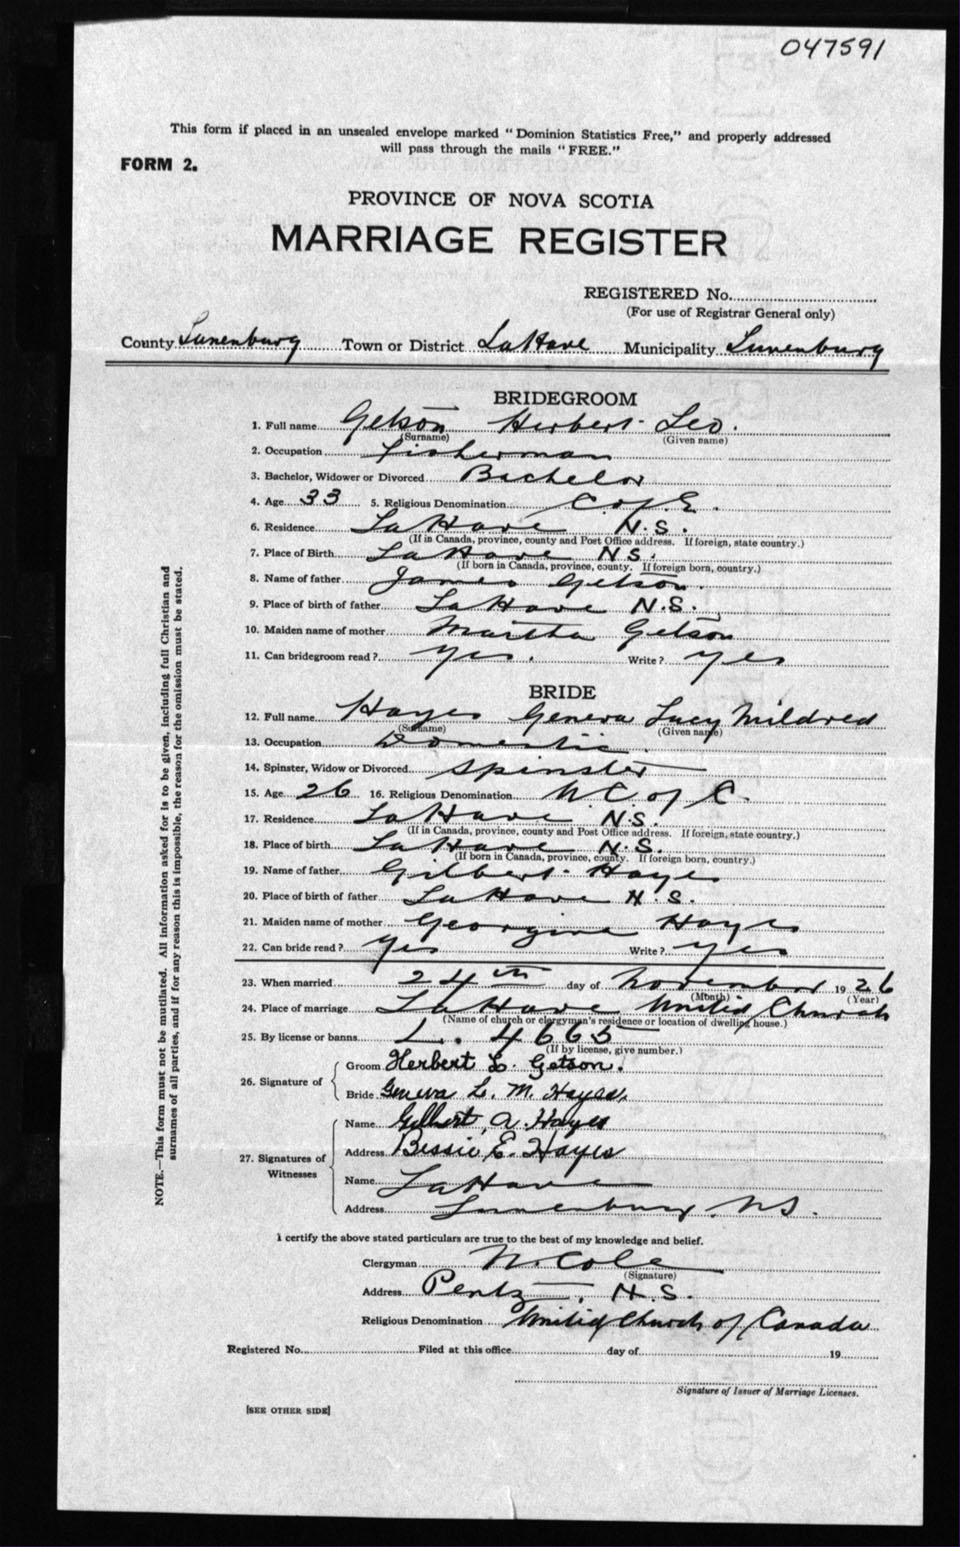 047591
This form if placed in an unsealed envelope marked "Dominion Statistics Free," and properly addressed
will pass through the mails "FREE."
FORM 2.
PROVINCE OF NOVA SCOTIA
MARRIAGE REGISTER
REGISTERED No.
(For use of Registrar General only)
County Lunenburg Town or District LaHave Municipality Lunenburg
BRIDEGROOM
1. Full name Getson Herbert Leo.
(Surname) (Given name)
2. Occupation Fisherman
3. Bachelor, Widower or Divorced Bachelor
4. Age 33 5. Religious Denomination C of E.
6. Residence LaHave N.S.
(If in Canada, province, county and Post Office address. If foreign, state country.)
7. Place of Birth LaHave N S.
(If born in Canada, province, county. If foreign born, country.)
8. Name of father James Getson.
9. Place of birth of father LaHave N.S.
10. Maiden name of mother Martha Getson
11. Can bridegroom read? Yes. Write? Yes
BRIDE
12. Full name Hayes Geneva Lucy Mildred
(Surname) (Given name)
13. Occupation Domestic.
14. Spinster, Widow or Divorced Spinster
15. Age 26 16. Religious Denomination U. C of C.
17. Residence LaHave N.S.
(If in Canada, province, county and Post Office address. If foreign, state country.)
18. Place of birth LaHave N.S.
(If born in Canada, province, county. If foreign born, country.)
19. Name of father Gilbert Hayes
20. Place of birth of father LaHave N.S.
21. Maiden name of mother Georgine Hayes
22. Can bride read? Yes Write? Yes
23. When married 24th day of November 1926
(Month) (Year)
24. Place of marriage LaHave United Church
(Name of church or clergyman's residence or location of dwelling house.)
25. By license or banns L. 4663
(If by license, give number.)
26. Signature of
Groom Herbert L. Getson.
Bride Geneva L. M. Hayes.
27. Signatures of Witnesses
Name Gilbert A. Hayes
Address Bessie E. Hayes
Name LaHave
Address Lunenburg. N.S.
I certify the above stated particulars are true to the best of my knowledge and belief.
Clergyman N. Cole
(Signature)
Address Pentz, N.S.
Religious Denomination United Church of Canada
Registered No. Filed at this office day of 19
Signature of Issuer of Marriage Licenses.
[SEE OTHER SIDE]
NOTE.—This form must not be mutilated. All information asked for is to be given, including full Christian and
surnames of all parties, and if for any reason this is impossible, the reason for the omission must be stated.